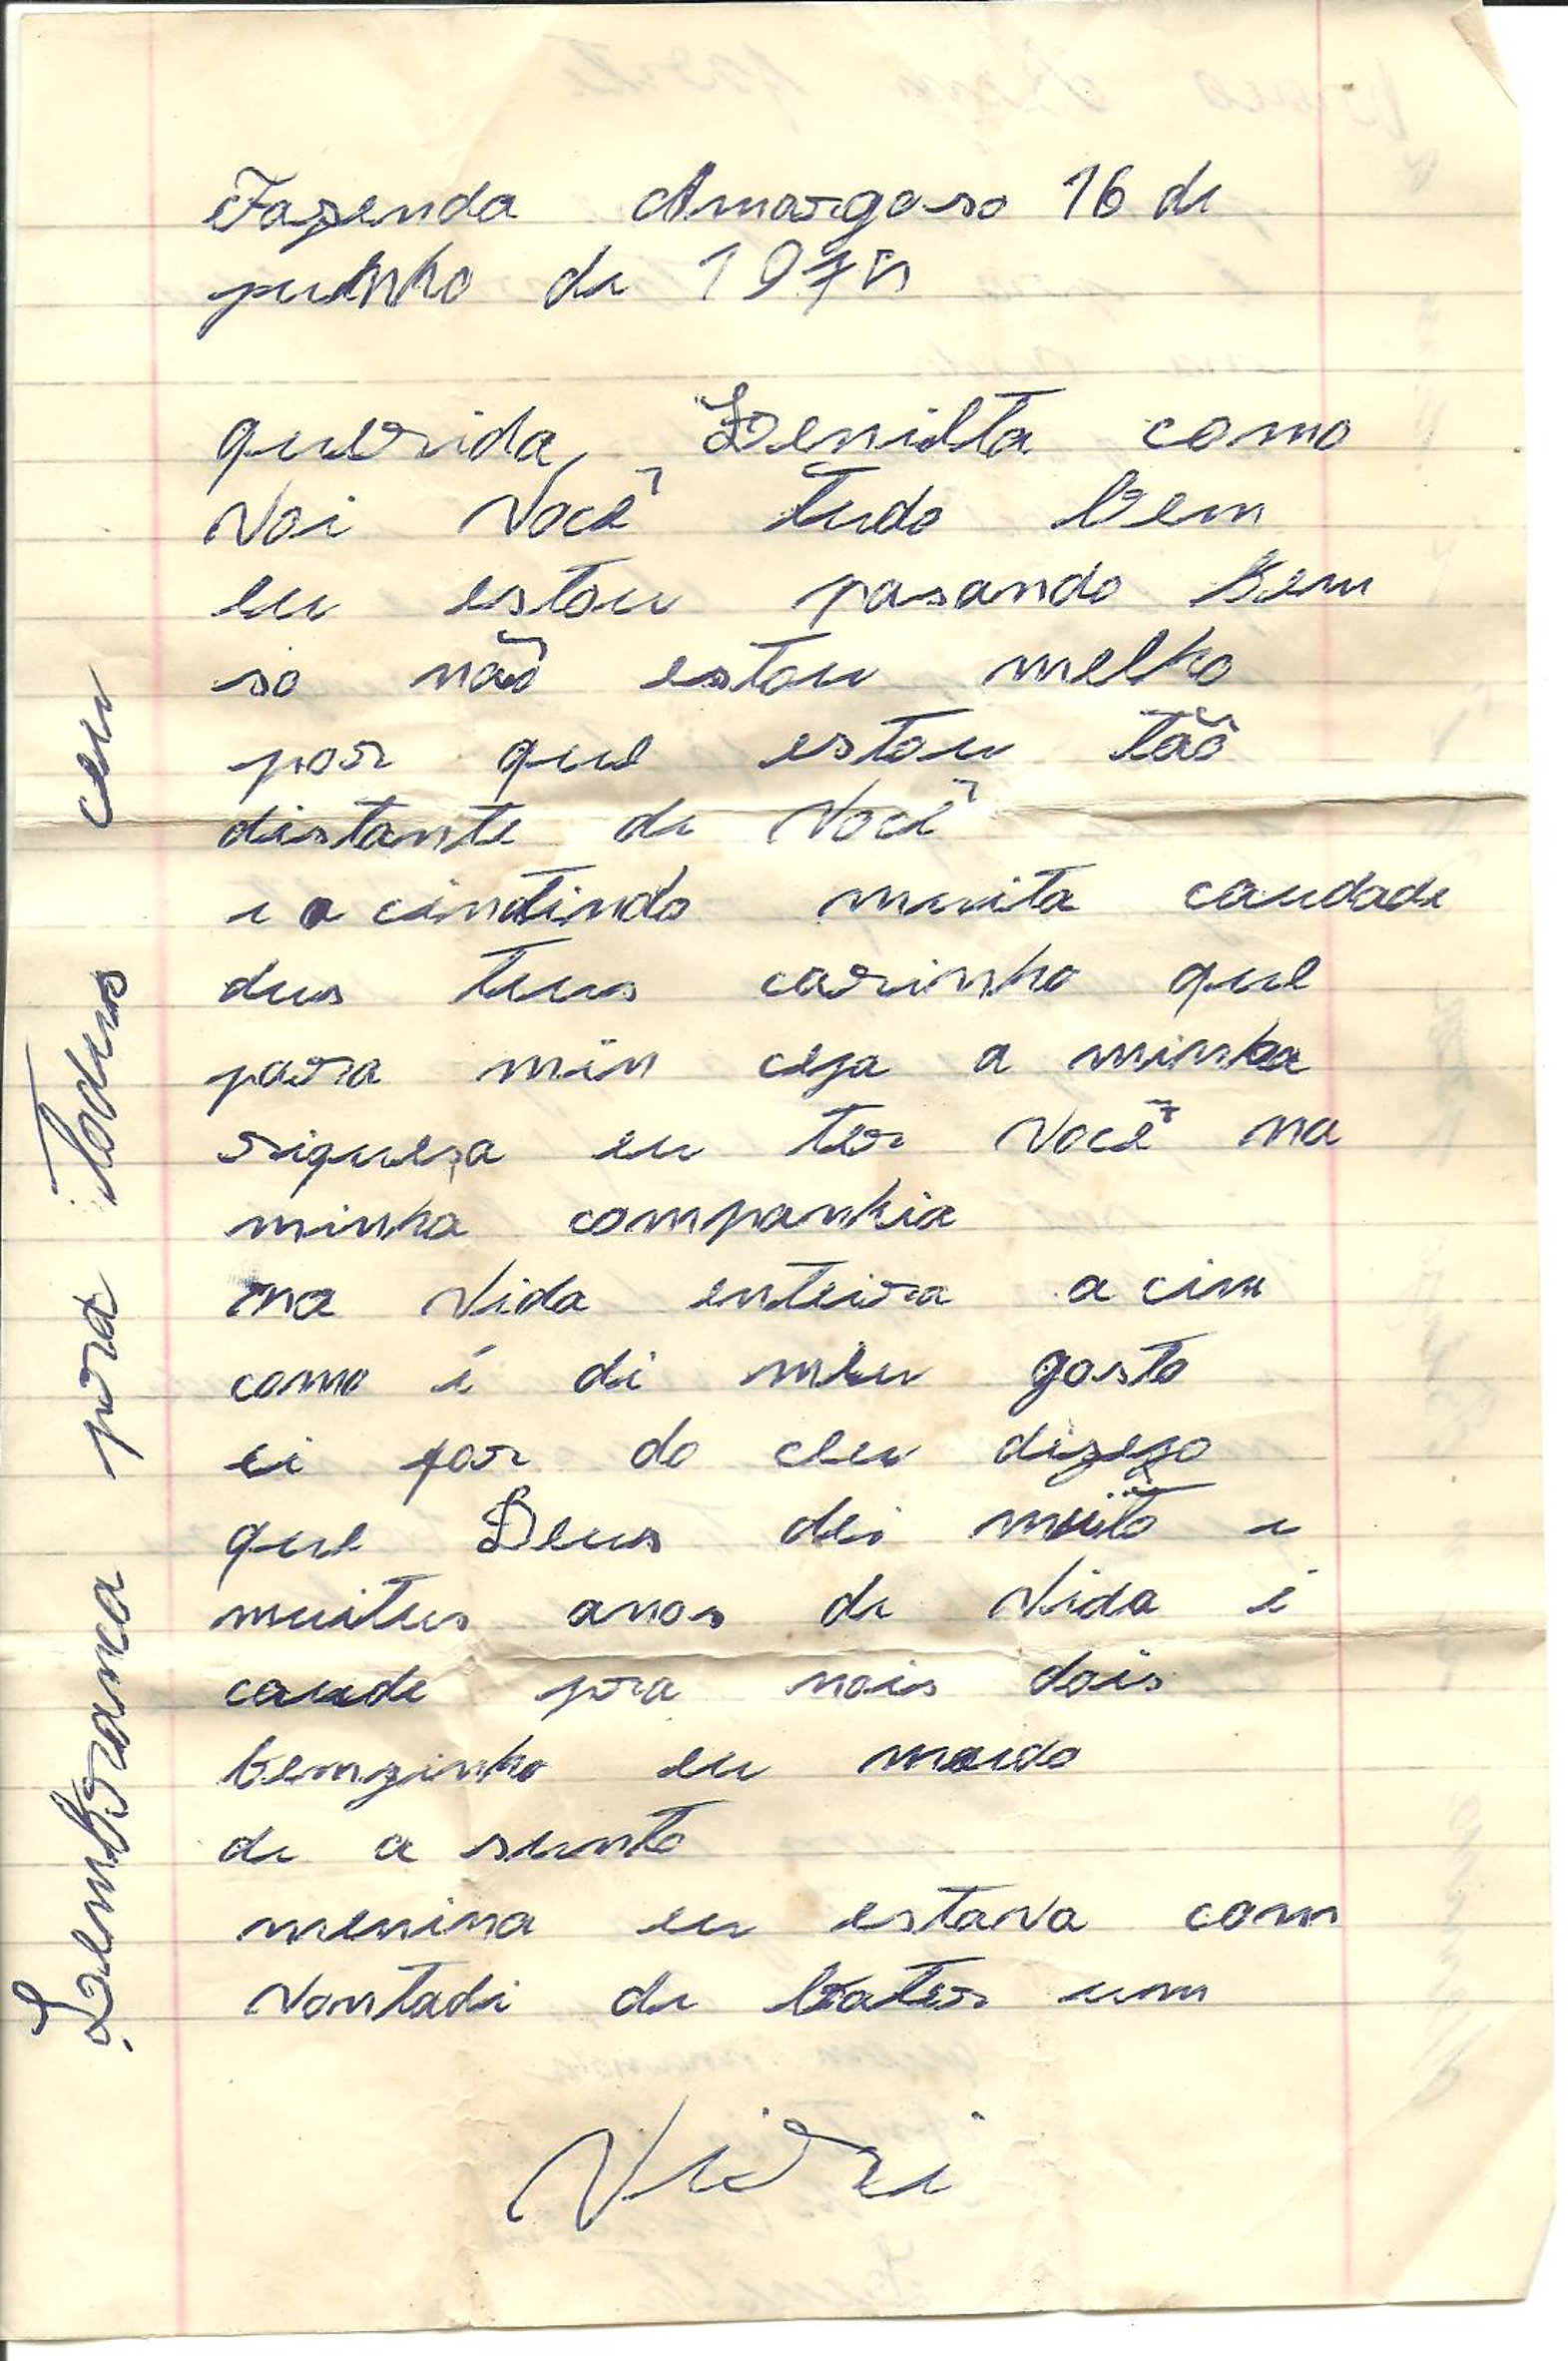 Fazenda Amargoso 16 de
junho de 197
querida, Zenilta como
Vai Você tudo bem
eu estou pasando bem
so não estou melho
por que estou tão
distante de Você
e a cintindo muita caudade
dus teus carinho que
para min ceja a minha
riqueza eu ter Você na
minha companhia
na Vida enteira a cim
como é di meu gosto
ei por do ceu dizejo
que Deus dei muito e
muitus anos de Vida i
caude pra nois dois
bemzinho eu mudo
de a sunto
menina eu estava com
Vontadi de bater um
Viri
Lembranca pra Todus ceu